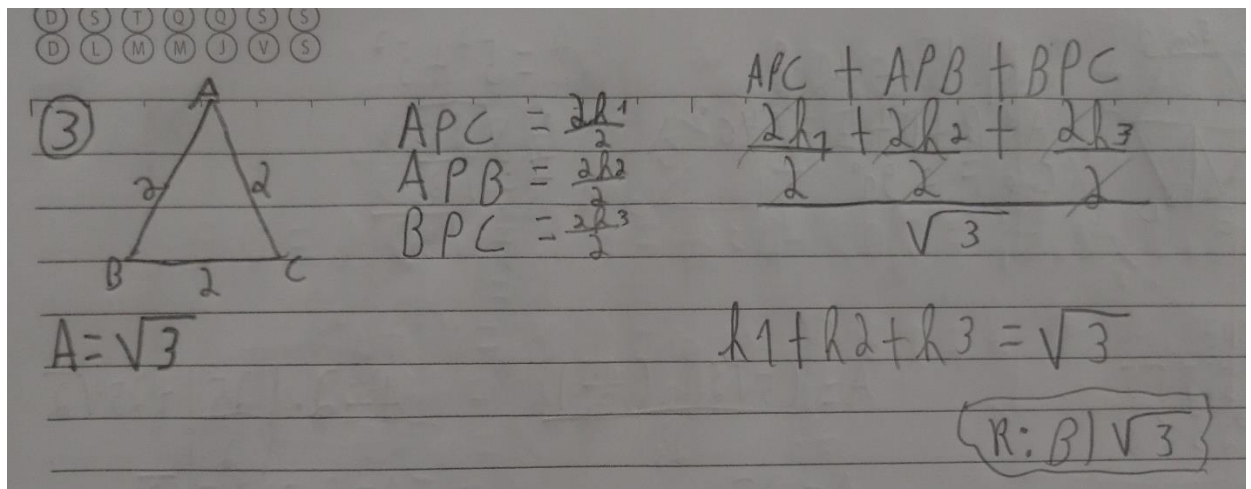 D S T Q Q S S
D L M M J V S
3
A
2 2
B 2 C
A = √3
APC = 2h1/2
APB = 2h2/2
BPC = 2h3/2
APC + APB + BPC
2h1/2 + 2h2/2 + 2h3/2
√3
h1 + h2 + h3 = √3
R: B) √3